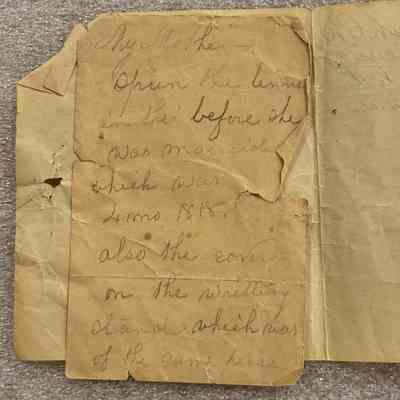 My Mother
Spun the linnen
on this before she
was married
which was
4 mo 1818.
also the cover
on the writting
stand which was
of the same piece